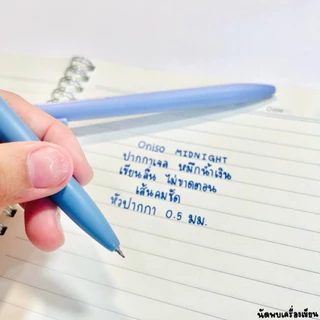 Oniso
Oniso MIDNIGHT
ปากกาเจล หมึกน้ำเงิน
เขียนลื่น ไม่ขาดตอน
เส้นคมชัด
หัวปากกา 0.5 มม.
นัดพบเครื่องเขียน